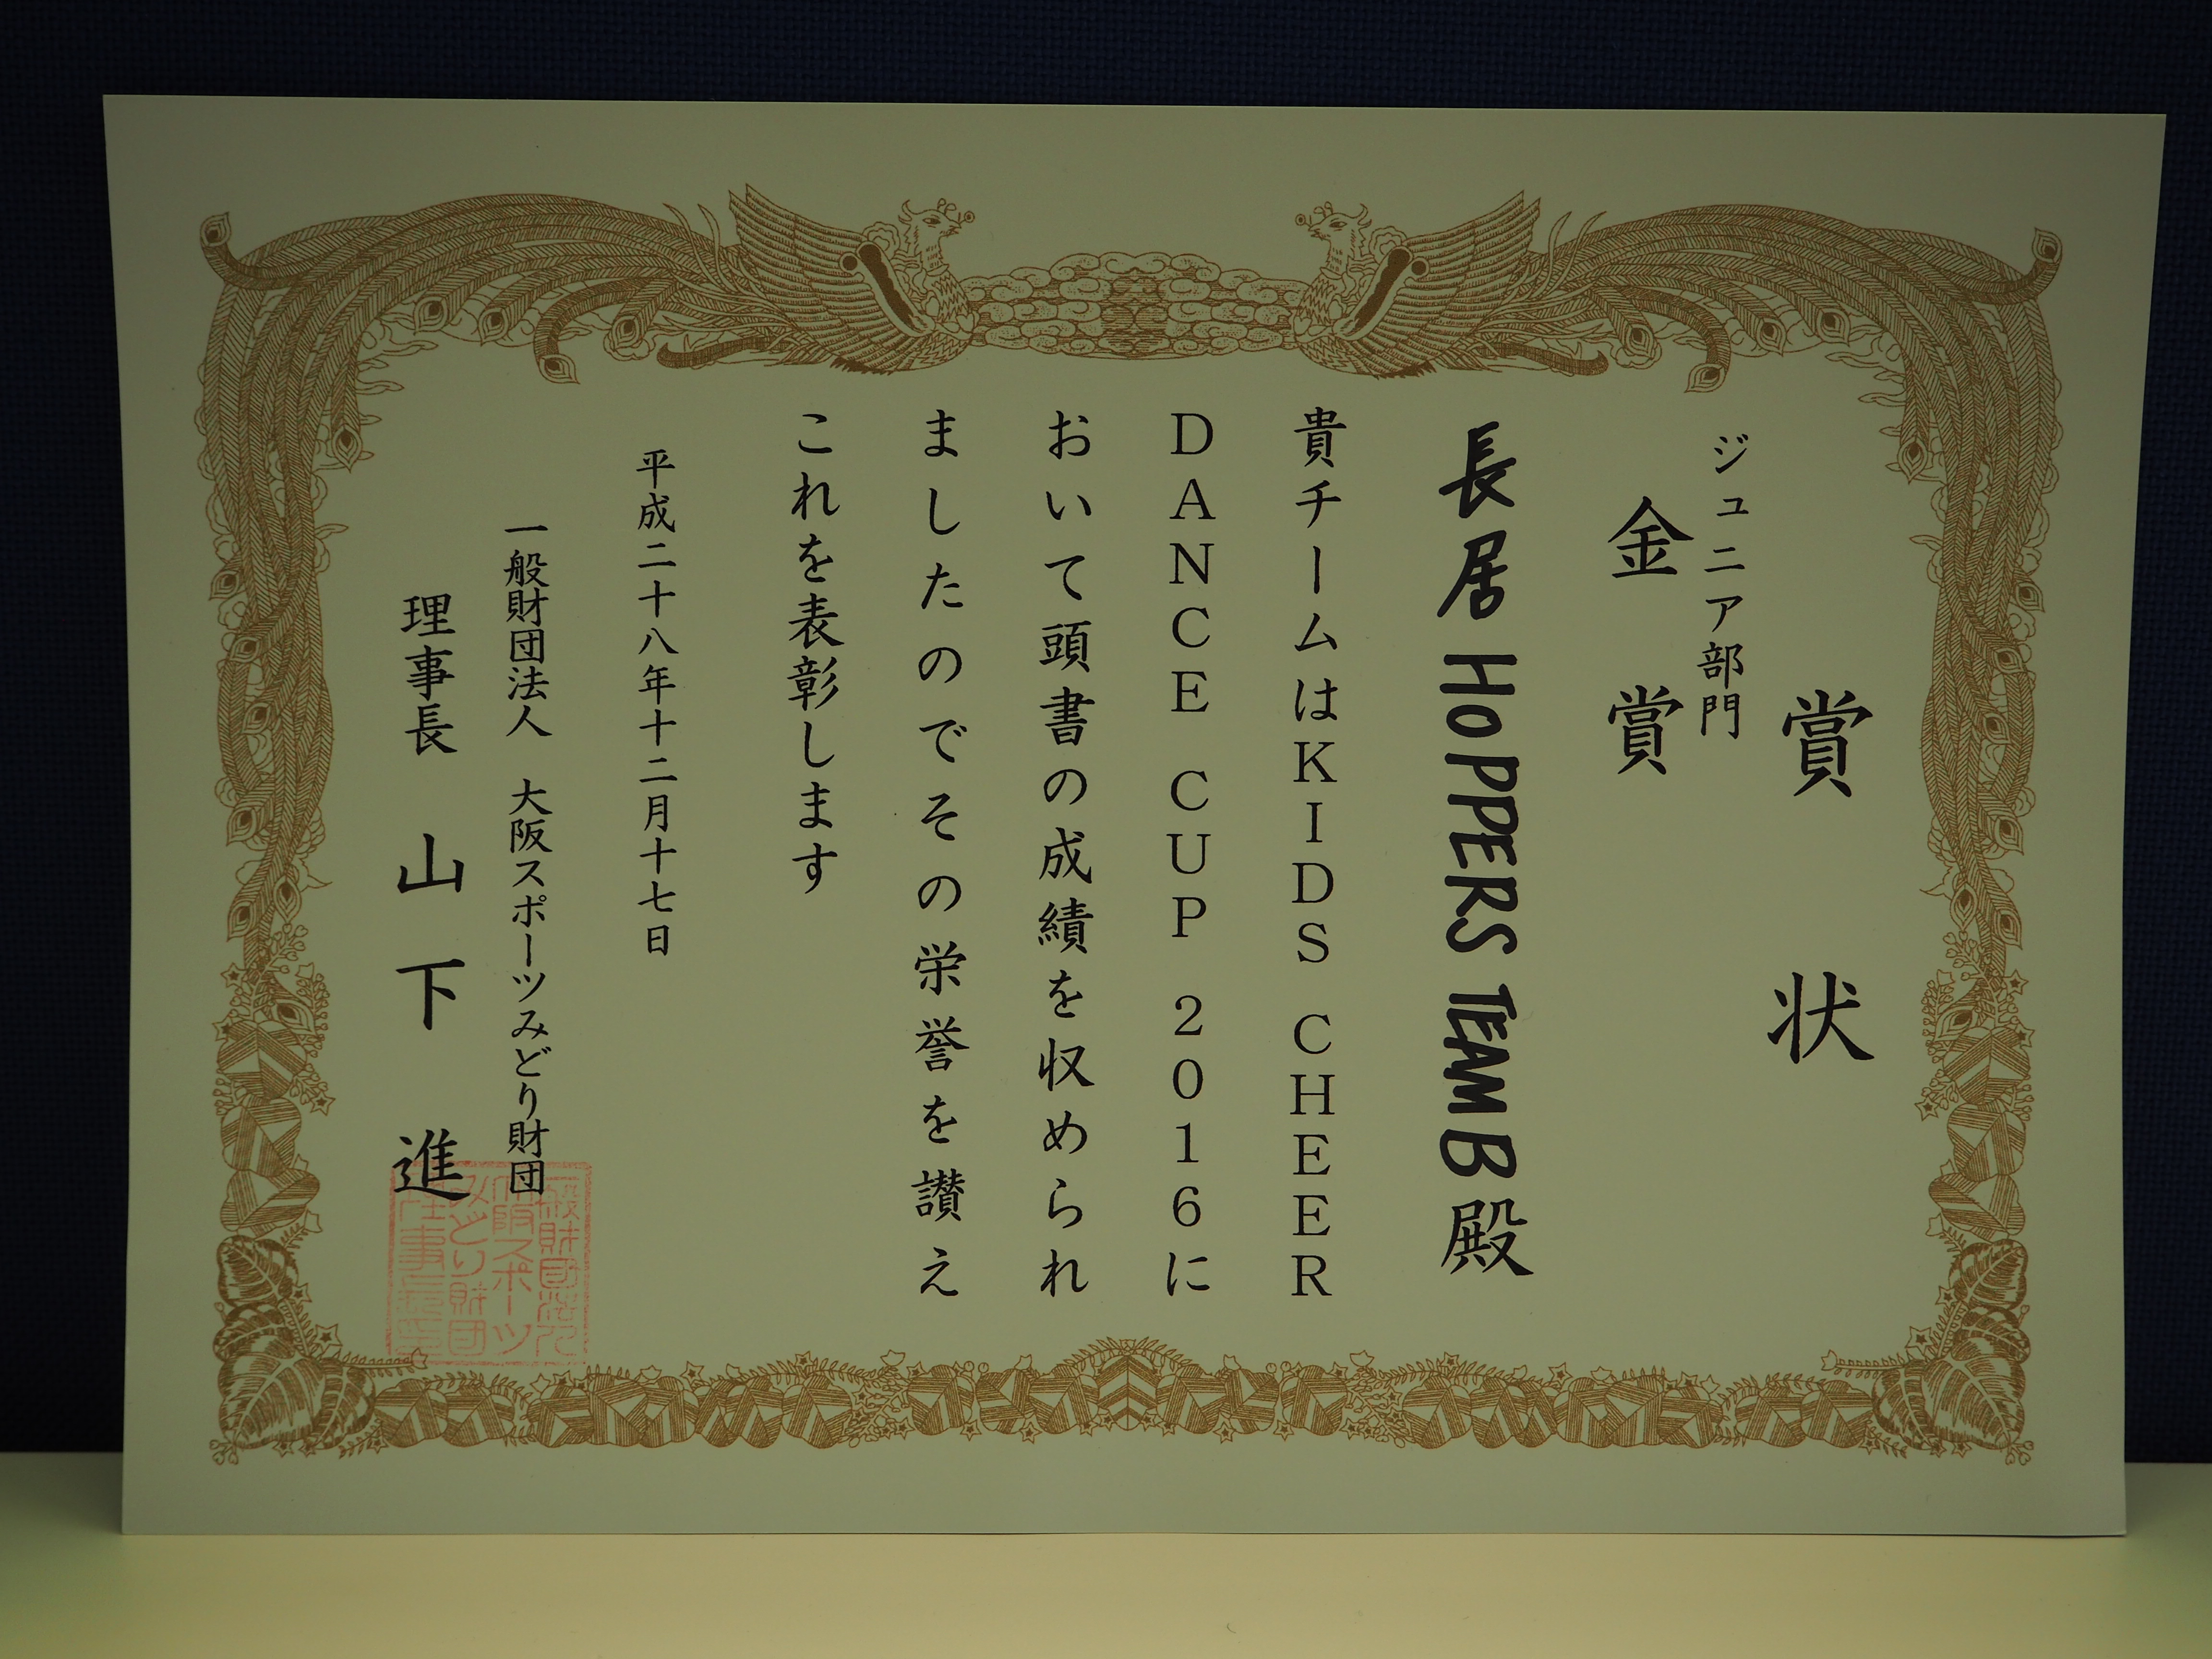 賞状
ジュニア部門
金賞
長居 HOPPERS TEAM B 殿
貴チームはKIDS CHEER
DANCE CUP 2016に
おいて頭書の成績を収められ
ましたのでその栄誉を讃え
これを表彰します
平成二十八年十二月十七日
一般財団法人 大阪スポーツみどり財団
理事長 山下 進
一般財団法人
大阪スポーツ
みどり財団
理事長印